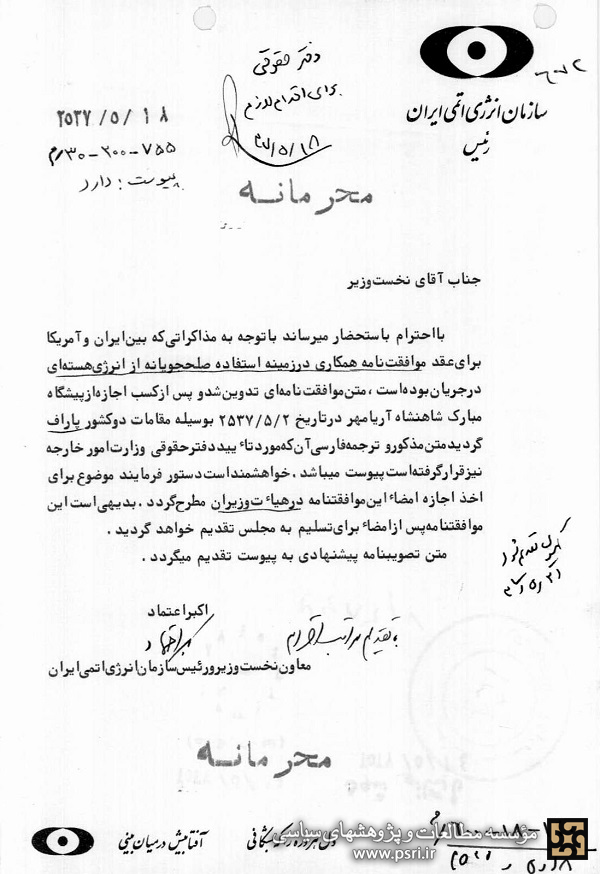 سازمان انرژی اتمی ایران
رئیس
دفتر حقوقی
برای اقدام لازم
۳۷/۵/۱۸
۲۵۳۷/۵/۱۸
۷۵۵-۲۰۰-۳۰م
پیوست: دارد
محرمانه
جناب آقای نخست‌وزیر
بااحترام باستحضار میرساند باتوجه به مذاکراتی‌که بین‌ایران وآمریکا
برای‌عقد موافقت‌نامه همکاری درزمینه استفاده صلحجویانه از انرژی‌هسته‌ای
درجریان‌بوده‌است ، متن‌موافقت‌نامه‌ای تدوین‌شدو پس ازکسب اجازه‌ازپیشگاه
مبارک شاهنشاه آریامهر درتاریخ ۲۵۳۷/۵/۲ بوسیله مقامات دوکشور پاراف
گردیدمتن‌مذکورو ترجمه‌فارسی‌آن‌که‌مورد‌تائییددفترحقوقی وزارت‌امورخارجه
نیزقرارگرفته‌است‌پیوست میباشد . خواهشمنداست‌دستور فرمایند موضوع برای
اخذ اجازه امضاء این‌موافقتنامه درهیات‌وزیران مطرح‌گردد . بدیهی‌است این
موافقتنامه‌پس ازامضاء برای‌تسلیم به مجلس تقدیم خواهد گردید .
متن تصویبنامه پیشنهادی به پیوست تقدیم میگردد .
با تقدیم مراتب احترام
اکبراعتماد
معاون‌نخست‌وزیرورئیس‌سازمان‌انرژی‌اتمی‌ایران
محرمانه
دل هر ذره را که بشکافی
آفتابیش در میان بینی
مؤسسه مطالعات و پژوهشهای سیاسی
www.psri.ir